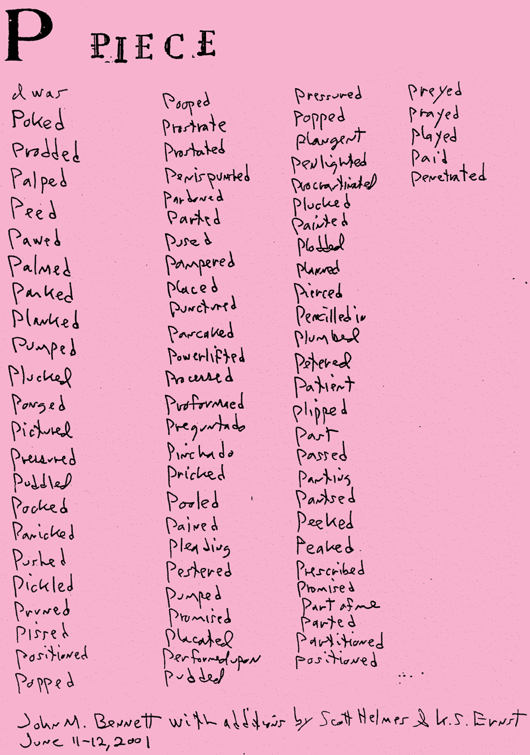 P PIECE
I was
Poked
Prodded
Palped
Peed
Pawed
Palmed
Parked
Planked
Pumped
Plucked
Ponged
Pictured
Pressured
Puddled
Pocked
Panicked
Pushed
Pickled
Pruned
Pissed
Positioned
Popped
Pooped
Prostrate
Prostated
Penispumted
Pardoned
Parted
Pused
Pampered
Placed
Punctured
Pancaked
Powerlifted
Processed
Proformaed
Preguntado
Pinchado
Pricked
Pooled
Pained
Pleading
Pestered
Pumped
Promised
Placated
Performed upon
Pudded
Pressured
Popped
Plangent
Penlighted
Procrastinated
Plucked
Painted
Plodded
Planned
Pierced
Pencilled in
Plumbed
Petered
Patient
Plipped
Past
Passed
Panting
Pantsed
Peeked
Peaked
Prescribed
Promised
Part of me
Parted
Partitioned
Positioned
Preyed
Prayed
Played
Paid
Penetrated
John M. Bennett with additions by Scott Helmes & K.S. Ernst
June 11-12, 2001